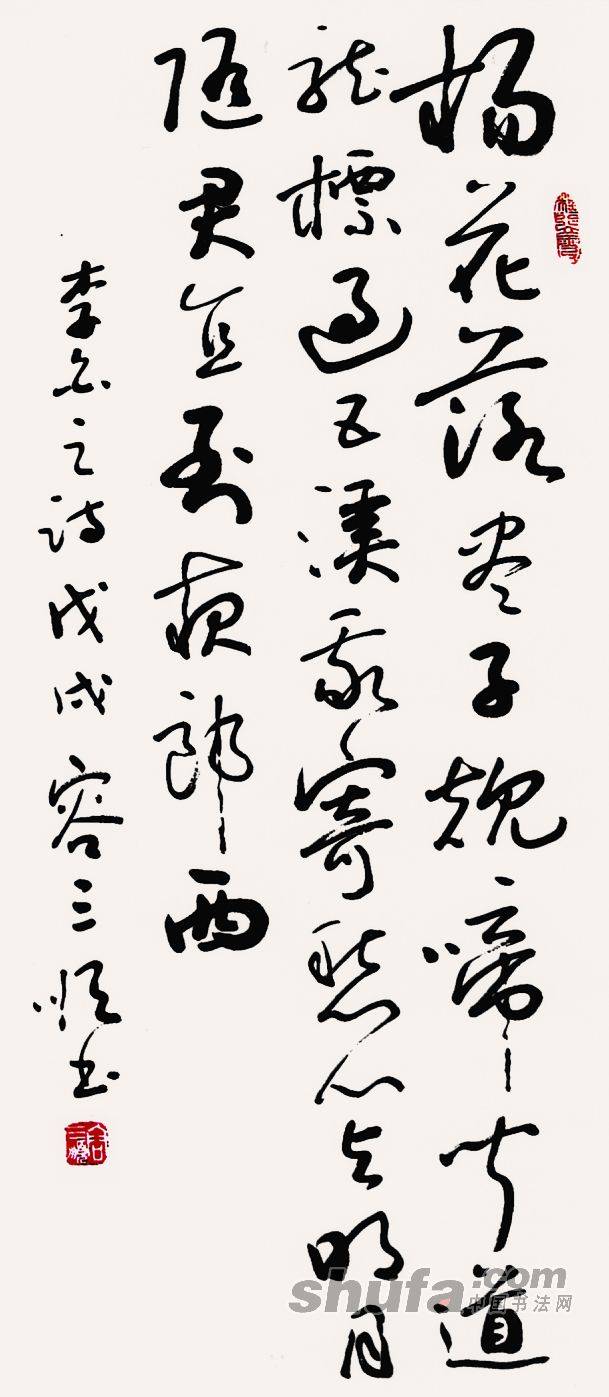 杨花落尽子规啼闻道
龙标过五溪我寄愁心与明月
随君直到夜郎西
李白之诗戊戌容三顺书
shufa.com
中国书法网